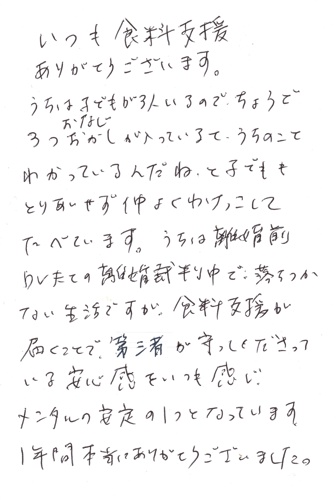 いつも食料支援
ありがとうございます。
うちは子どもが3人いるので、ちょうど
おなじ
3つおかしが入っていると、うちのこと
わかっているんだね、と子どもも
とりあいせず仲よくわけっこして
たべています。うちは離婚前
DV夫との離婚裁判中で、落ちつか
ない生活ですが、食料支援が
届くことで、第三者が守ってくださって
いる安心感をいつも感じ
メンタルの安定の1つとなっています。
1年間本当にありがとうございました。